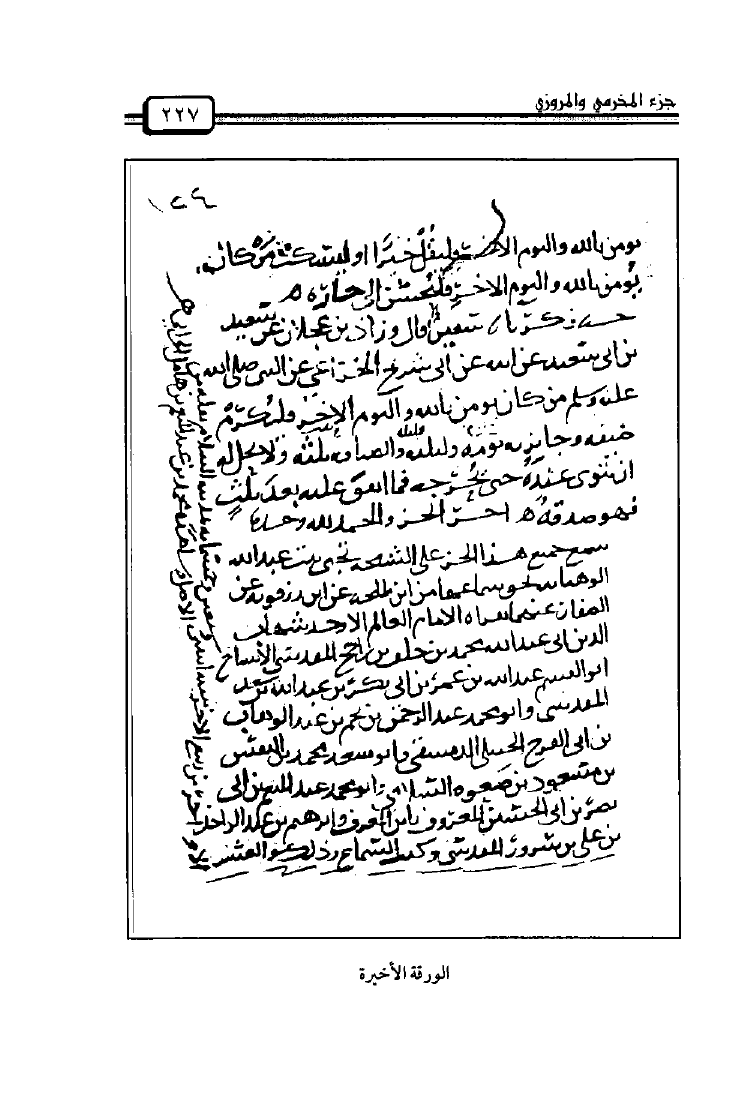 جزء المخرمي والمروزي
٢٢٧
١٢٤
يومن بالله واليوم الاخر فليقل خيرا او ليسكت من كان
يؤمن بالله واليوم الاخر فليحسن الى جاره ه
زكريا سفين قال وزاد بن عجلان عن سعيد
بن ابي سعيد عن ابيه عن ابي شريح الخزاعي عن النبي صلى الله
عليه وسلم من كان يومن بالله واليوم الاخر فليكرم
ضيفه وجايزته يومه وليلته والضيافه ثلثه ولا يحل له
ان يثوى عنده حتى يحرجه فما انفق عليه بعد ثلث
فهو صدقه ه اخر الجز والحمد لله وحده
سمع جميع هذا الجز على الشيخه تجنى بنت عبد الله
الوهبانيه بحق سماعها من ابن طلحه عن ابن رزقويه عن
الصفار عنهما بقراه الامام العالم الاوحد شهاب
الدين ابي عبد الله محمد بن خلف بن راجح المقدسي الاشياخ
ابو القسم عبد الله بن عمر بن ابي بكر بن عبد الله بن سعد
المقدسي وابو محمد عبد الرحمن بن نجم بن عبد الوهاب
بن ابي الفرج الحنبلي الدمشقي وابو سعد محمد بن
بن مسعود بن صعوه السلامي وابو محمد عبد المنعم بن ابي
نصر بن ابي المعروف بابن وابرهيم بن عبد الواحد
بن علي بن سرور المقدسي وكتب السماع وذلك في العشر
ربيع الاخر سنه
الورقة الأخيرة